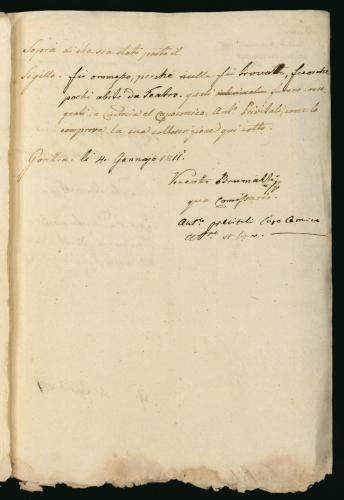 Sopra di che sia stato posto il
Sigillo. fù ommesso, perche nulla fù trovato, fuorche
pochi abiti da Teatro. quali furono conse-
gnati in Custodia al Capocomico, Ant. Privitali, come lo
comprova la sua sottoscrizione qui sotto.
Gorizia. li 4. Gennajo 1811.
qua Comissario.
Ant.º privitali Capo Comico